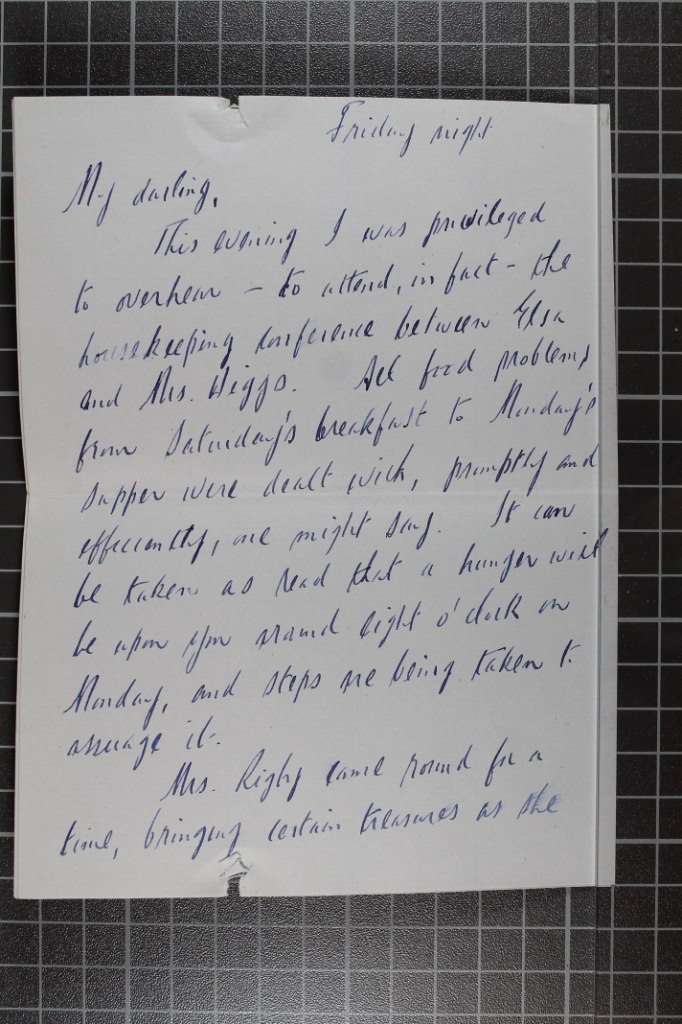 Friday night
My darling,
This evening I was privileged
to overhear – to attend, in fact – the
housekeeping conference between Elsa
and Mrs. Higgs. All food problems
from Saturday's breakfast to Monday's
supper were dealt with, promptly and
efficiently, one might say. It can
be taken as read that a hunger will
be upon you around eight o'clock on
Monday, and steps are being taken to
assuage it.
Mrs. Rigby came round for a
time, bringing certain treasures as she